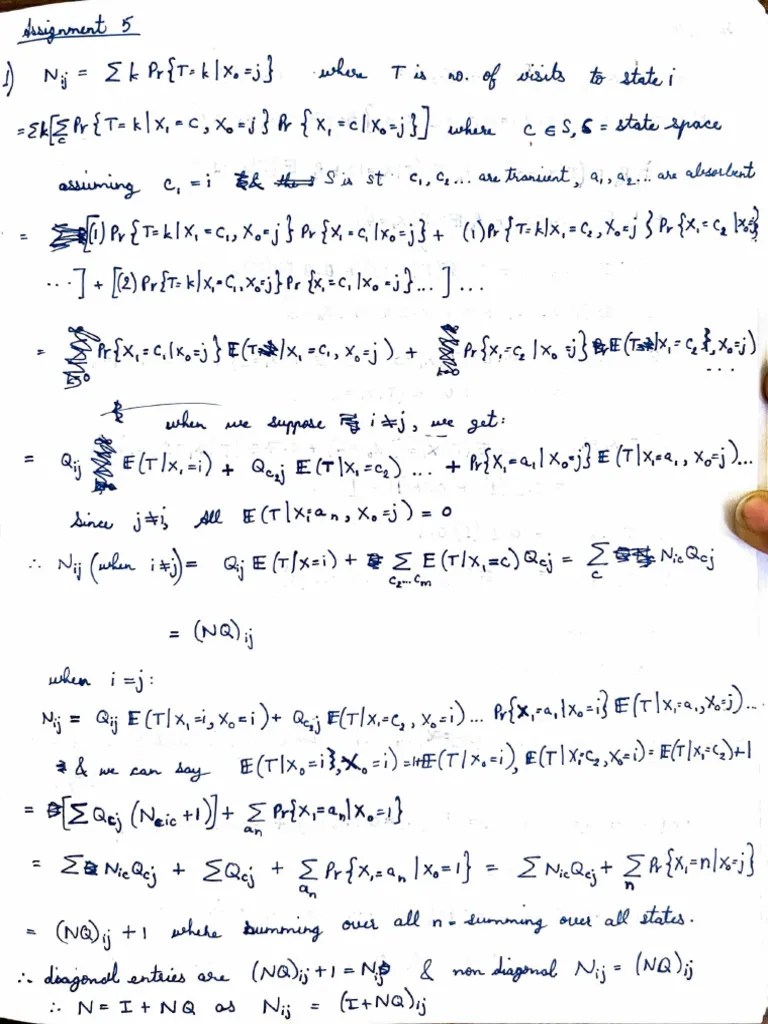 Assignment 5
1) N_ij = Σ k Pr{T=k|X₀=j} where T is no. of visits to state i
= Σk[Σ_c Pr{T=k|X₁=c, X₀=j} Pr{X₁=c|X₀=j}] where c ∈ S, S = state space
assuming c₁ = i & S is st c₁, c₂... are transient, a₁, a₂... are absorbent
= [(1) Pr{T=k|X₁=c₁, X₀=j} Pr{X₁=c₁|X₀=j} + (1) Pr{T=k|X₁=c₂, X₀=j} Pr{X₁=c₂|X₀=j}
...] + [(2) Pr{T=k|X₁=c₁, X₀=j} Pr{X₁=c₁|X₀=j}...] ...
= Pr{X₁=c₁|X₀=j} E(T|X₁=c₁, X₀=j) + Pr{X₁=c₂|X₀=j} E(T|X₁=c₂}, X₀=j)
...
when we suppose i≠j, we get:
= Q_ij E(T|X₁=i) + Q_c₂j E(T|X₁=c₂) ... + Pr{X₁=a₁|X₀=j} E(T|X₁=a₁, X₀=j)...
Since j≠i, all E(T|X₁=a_n, X₀=j) = 0
∴ N_ij (when i≠j) = Q_ij E(T|X=i) + Σ_{c₂...c_m} E(T|X₁=c) Q_cj = Σ_c N_ic Q_cj
= (NQ)_ij
when i=j:
N_ij = Q_ij E(T|X₁=i, X₀=i) + Q_c₂j E(T|X₁=c₂, X₀=i) ... Pr{X₁=a₁|X₀=i} E(T|X₁=a₁, X₀=j)...
& we can say E(T|X₀=i}, X₀=i) = 1+E(T|X₀=i), E(T|X₁=c₂, X₀=i) = E(T|X₁=c₂)+1
= [Σ Q_cj (N_ic + 1)] + Σ_{a_n} Pr{X₁=a_n|X₀=1}
= Σ N_ic Q_cj + Σ Q_cj + Σ_{a_n} Pr{X₁=a_n|X₀=1} = Σ N_ic Q_cj + Σ_n Pr{X₁=n|X₀=j}
= (NQ)_ij + 1 where summing over all n = summing over all states.
∴ diagonal entries are (NQ)_ij + 1 = N_ij & non diagonal N_ij = (NQ)_ij
∴ N = I + NQ as N_ij = (I+NQ)_ij